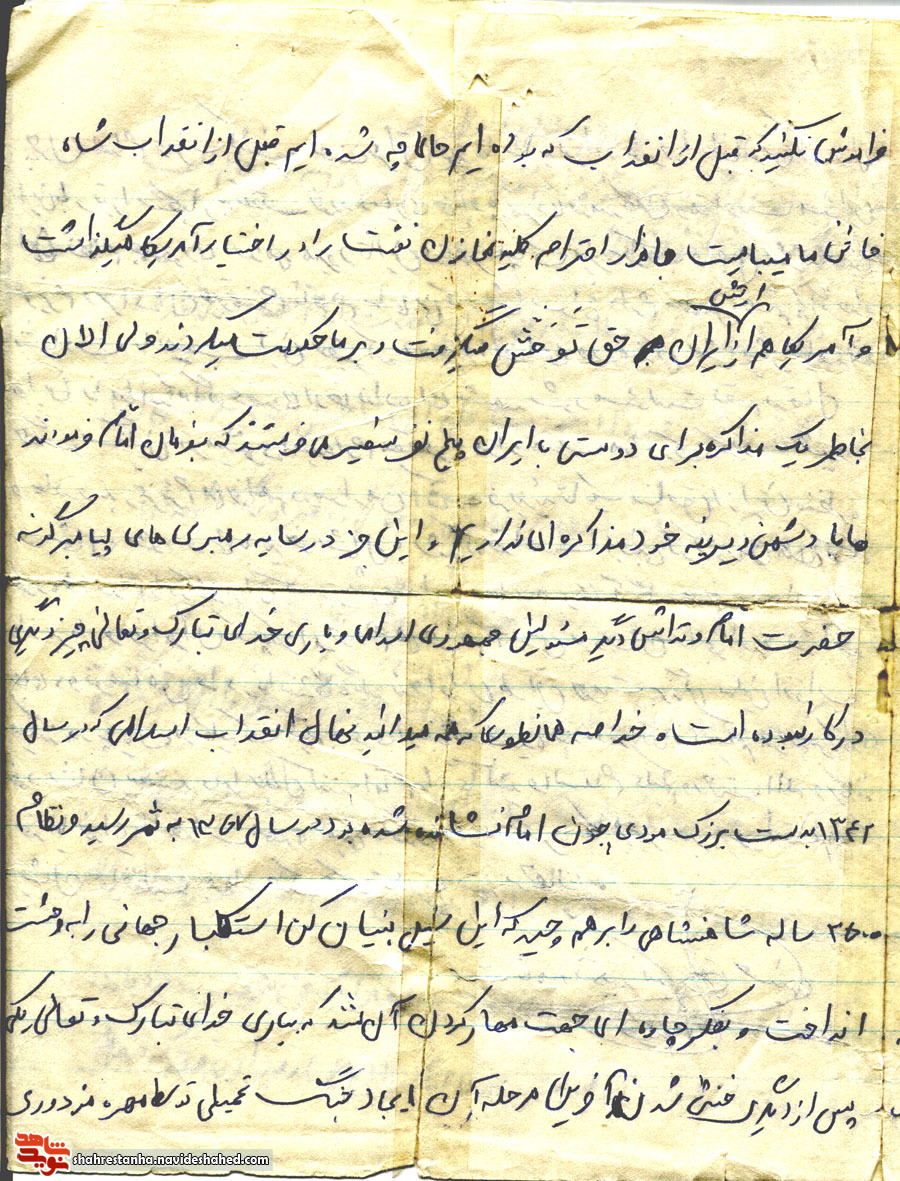 فراموش نکنید که قبل از انقلاب که بوده ایم حالا چه شده ایم قبل از انقلاب شاه
خائن ما میبایست با هزار احترام کلیه مخازن نفت را در اختیار آمریکا میگذاشت
ارتش
و آمریکا هم از ایران حق توحش میگرفت و بر ما حکومت میکردند ولی الان
بخاطر یک مذاکره برای دوستی با ایران پنج نفر سفیر می فرستند که بفرمان امام فرمودند
ما با دشمن دیرینه خود مذاکره ای نداریم و این جز در سایه رهبری های پیامبرگونه
حضرت امام و تلاش دیگر مسئولین جمهوری اسلامی و یاری خدای تبارک و تعالی چیز دیگری
در کار نبوده است خلاصه همانطوری که میدانید نهال انقلاب اسلامی که در سال
۱۳۴۲ بدست بزرگ مردی چون امام نشانده شده بود در سال ۱۳۵۷ به ثمر رسید و نظام
۲۵۰۰ ساله شاهنشاهی را برهم چید که این سیل بنیان کن استکبار جهانی را به وحشت
انداخت و بفکر چاره ای جهت مهار کردن آن شد که بیاری خدای تبارک و تعالی یکی
پس از دیگری خنثی شدند آخرین مرحله آن ایجاد جنگ تحمیلی توسط مهره مزدوری
شاهد
نوید
shahrestanha.navideshahed.com